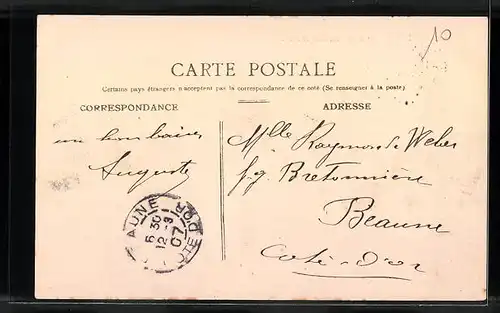 10
CARTE POSTALE
Certains pays étrangers n'acceptent pas la correspondance de ce coté (Se renseigner à la poste)
CORRESPONDANCE
ADRESSE
un bon baiser
Auguste
Mlle Raymonde Weber
f.g. Bretonnière
Beaune
Côte-d'or
BEAUNE
6 30
12 - 3
07
COTE D'OR